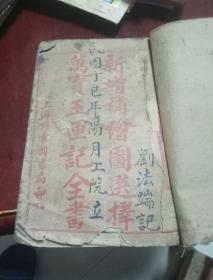 新增繪圖選擇
萬寶玉匣記全書
民國丁巳年陽月工院立
劉法端記
上海
圖書局印